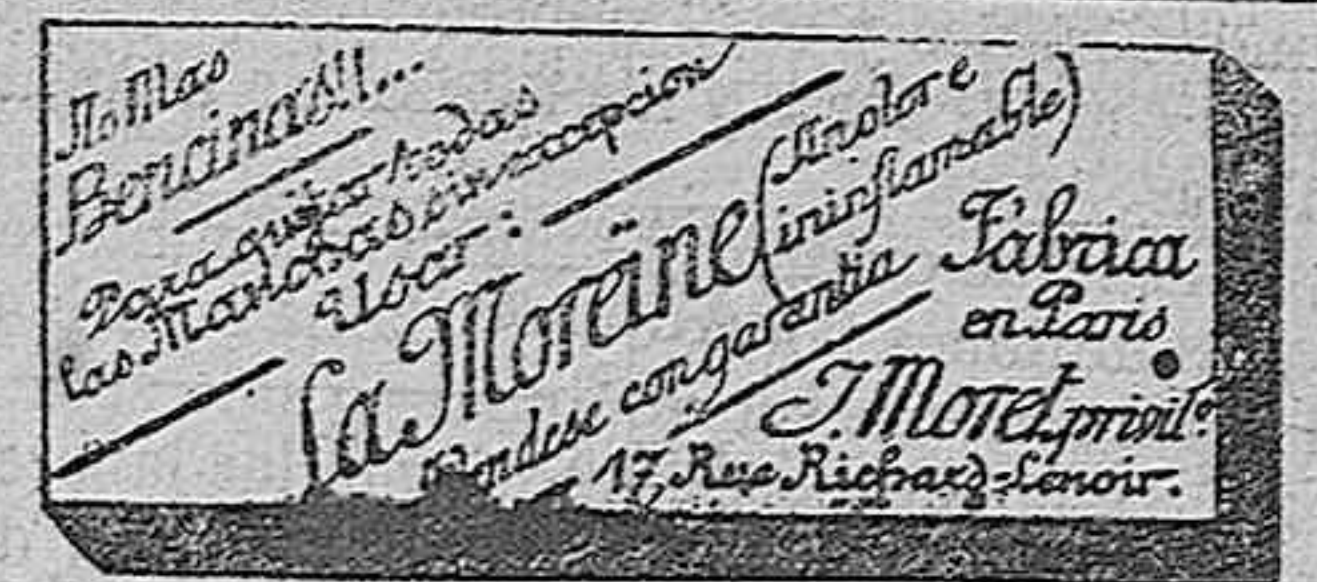 No Mas
Bencinas!!...
Para quitar todas
las Manchas sin excepcion
Usar:
La Moreïne
(Inolor e
ininflamable)
Vendese con garantia
Fábrica
en Paris
J. Moret, privil.º
17, Rue Richard-Lenoir.